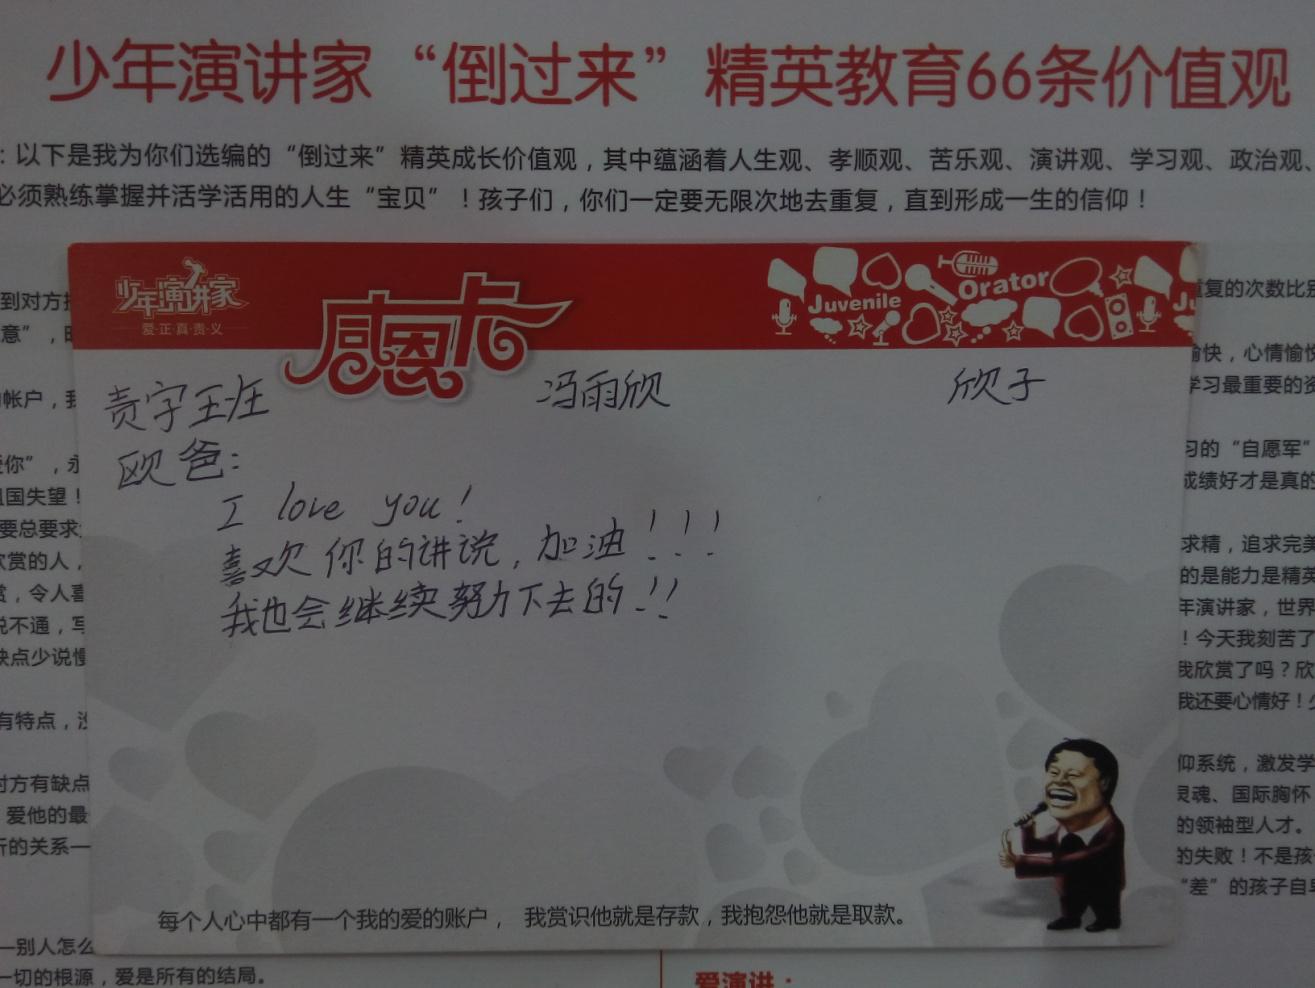 少年演讲家“倒过来”精英教育66条价值观
：以下是我为你们选编的“倒过来”精英成长价值观，其中蕴涵着人生观、孝顺观、苦乐观、演讲观、学习观、政治观、
必须熟练掌握并活学活用的人生“宝贝”！孩子们，你们一定要无限次地去重复，直到形成一生的信仰！
少年演讲家
爱·正·真·责·义
感恩卡
Juvenile
Orator
责字班
冯雨欣
欣子
欧爸：
I love you！
喜欢你的讲说，加油！！！
我也会继续努力下去的！！
每个人心中都有一个我的爱的账户， 我赏识他就是存款，我抱怨他就是取款。
到对方
意”，
帐户，
爱你”，
祖国失望！
要总要求
欣赏的人，
赏，令人喜
说不通，写
缺点少说慢
有特点，没
对方有缺点
爱他的最
新的关系—
—别人怎么
一切的根源，爱是所有的结局。
重复的次数比别
愉快，心情愉悦
学习最重要的资
习的“自愿军”
成绩好才是真的
求精，追求完美
的是能力是精英
年演讲家，世界
！今天我刻苦了
我欣赏了吗？欣
我还要心情好！少
仰系统，激发学
灵魂、国际胸怀
的领袖型人才。
的失败！不是孩
“差”的孩子自卑
爱演讲：